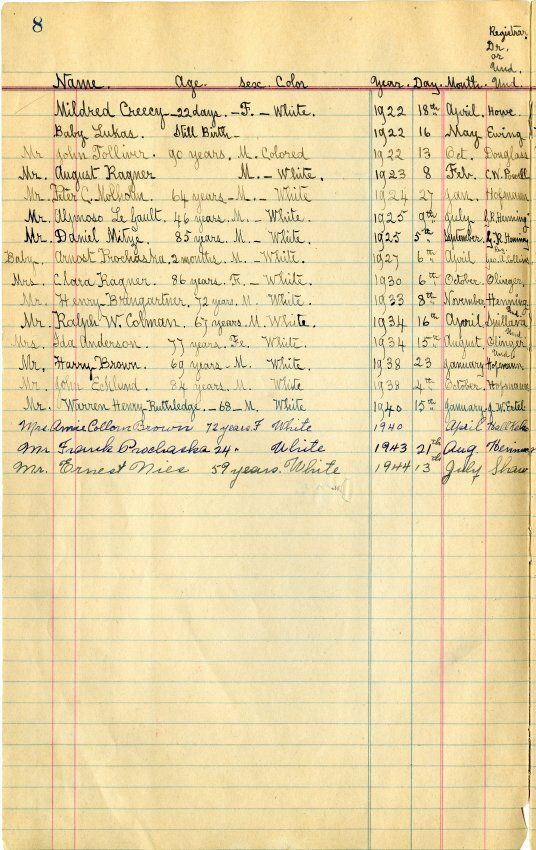 8
Registrar
Dr.
or
Und.
Name. Age. Sex. Color Year. Day. Month. Und.
Mildred Creecy - 22 days. - F. - White. 1922 18th April. Howe.
Baby Lukas. Still Birth - 1922 16 May Ewing.
Mr. John Tolliver. 90 years. M. Colored 1922 13 Oct. Douglass
Mr. August Ragner M. - White. 1923 8 Feb. C.W. Powell
Mr. Peter C. Molholm. 64 years - M. - White 1924 27 Jan. Hofmann
Mr. Alpmoso Le Gault. 46 years. M. - White. 1925 9th July J.R. Henning
Mr. Daniel 85 years. M. - White. 1925 5th September J.R. Henning
Baby. Arnost Prochaska 2 months. M. - White. 1927 6th April
Mrs. Clara Ragner 86 years. F. - White. 1930 6th October Olinger.
Mr. Henry Brimgartner, 72 years. M. White. 1933 8th November Henning
Mr. Ralph W. Colman. 67 years. M. White. 1934 16th April
Mrs. Ida Anderson. 77 years. Fe. White. 1934 15th August Olinger
Mr. Harry Brown. 69 years. M. White. 1938 23 January Hofmann
Mr. John Ecklund. 84 years. M. White. 1938 4th October Hofmann
Mr. Warren Henry Ruthledge. - 68 - M. White. 1940 15th January J.W. Ertel
Mrs Annie Collom Brown 72 years F White 1940 April
Mr Frank Prochaska 24 White 1943 21th Aug.
Mr. Ernest Nies 59 years. White 1944 13th July Shaw